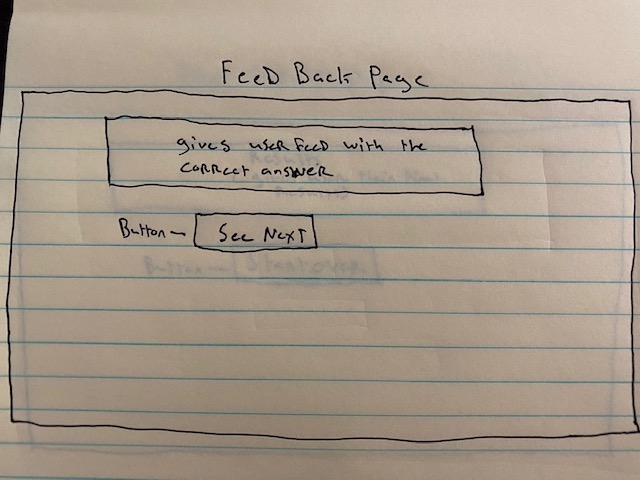 FeeD Back Page
gives useR FeeD with the
coRRect answeR
Button - See NexT